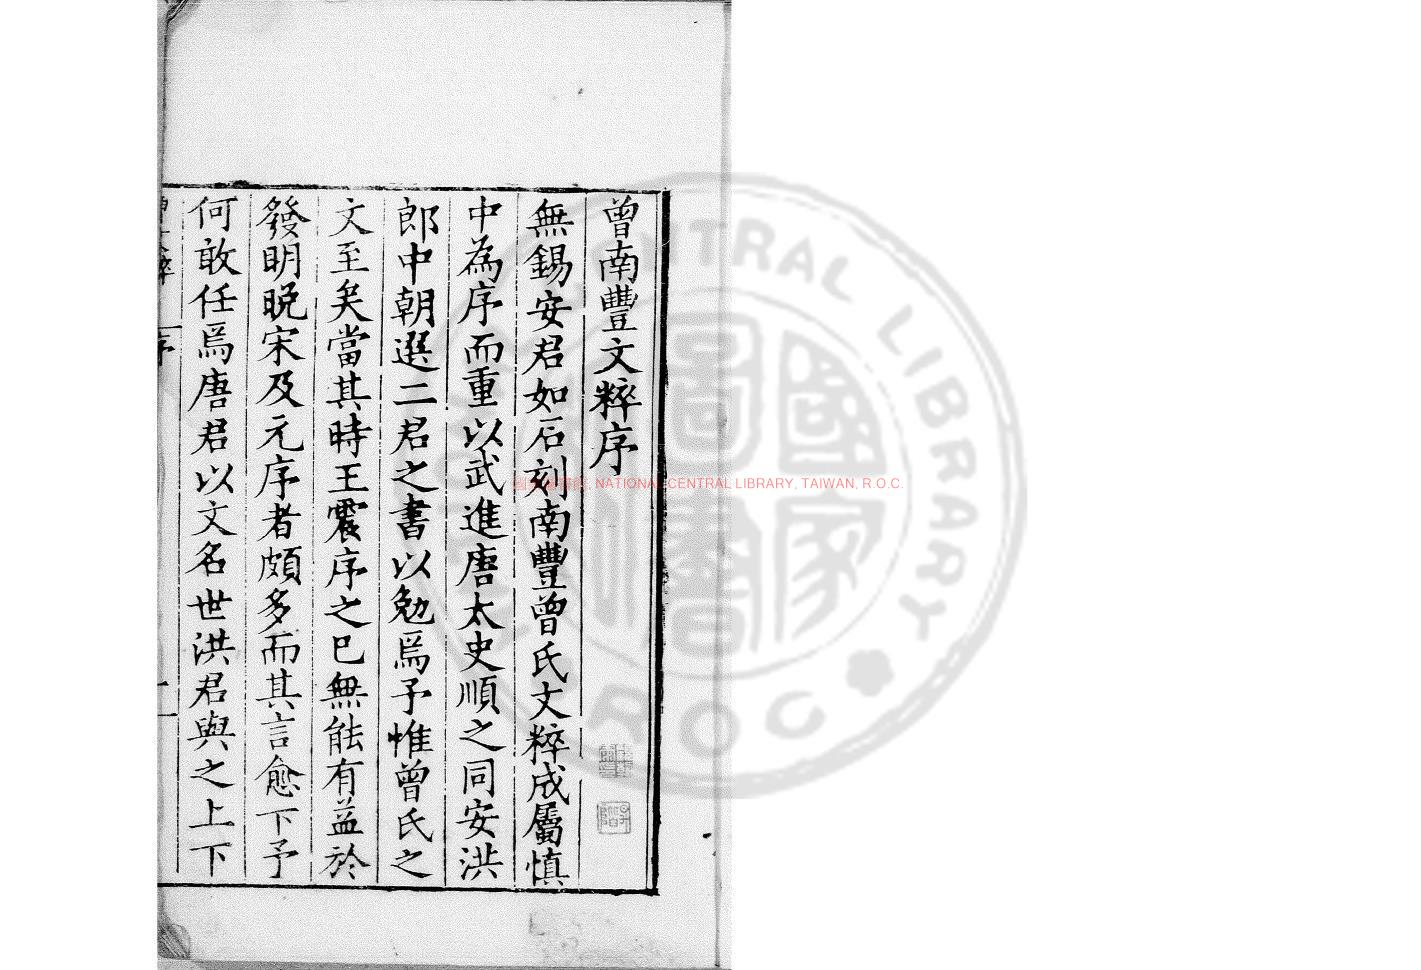 曾南豐文粹序
無錫安君如石刻南豐曾氏文粹成屬慎
中為序而重以武進唐太史順之同安洪
郎中朝選二君之書以勉焉予惟曾氏之
文至矣當其時王震序之已無能有益於
發明晚宋及元序者頗多而其言愈下予
何敢任焉唐君以文名世洪君與之上下
序
一
國家圖書館, NATIONAL CENTRAL LIBRARY, TAIWAN, R.O.C.
國家圖書
NATIONAL CENTRAL LIBRARY
ROC